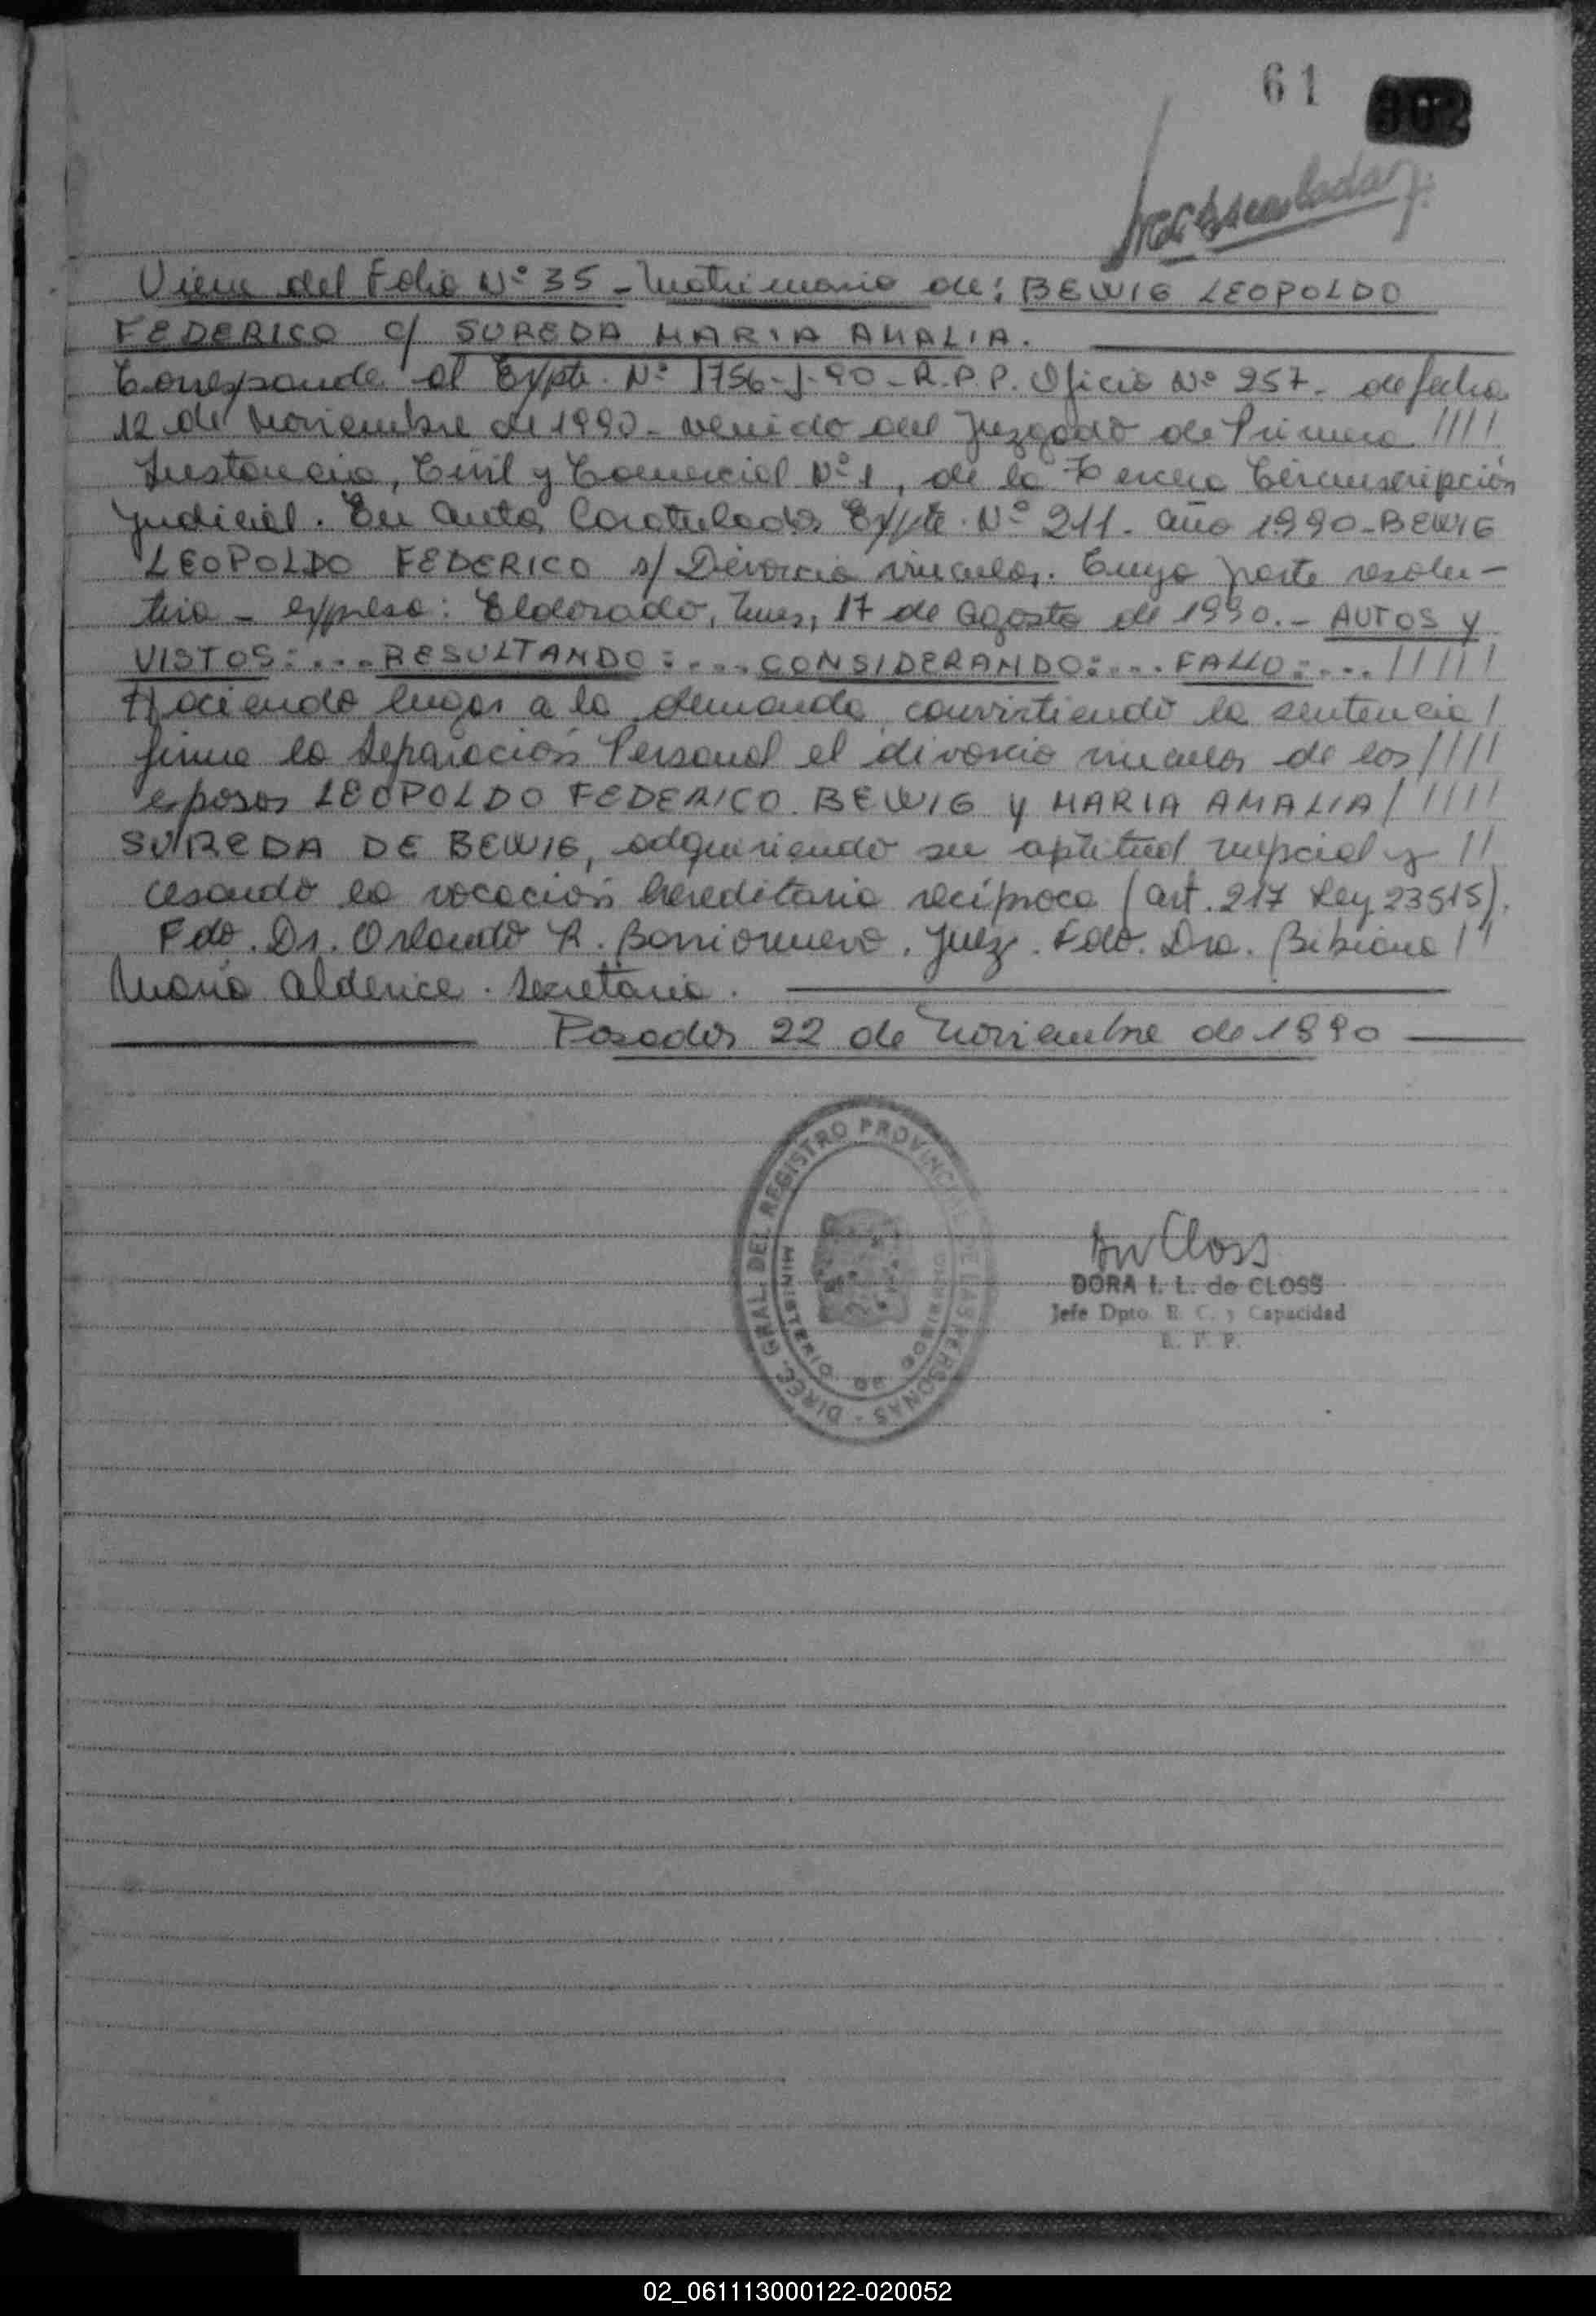 61
302
Viene del Folio Nº 35 - Matrimonio de: BEWIG LEOPOLDO
FEDERICO c/ SUREDA MARIA AMALIA.
Corresponde al Expte. Nº 1756-J-90- R.P.P. Oficio Nº 257- de fecha
12 de Noviembre de 1990- venido del Juzgado de Primera ////
Instancia, Civil y Comercial Nº 1, de la Tercera Circunscripción
Judicial. En autos Caratulados Expte. Nº 211- año 1990-BEWIG
LEOPOLDO FEDERICO s/ Divorcio vincular. Cuya parte resolu-
tiva - expresa: Eldorado, Mnes, 17 de agosto de 1990.- AUTOS Y
VISTOS:....RESULTANDO:....CONSIDERANDO:....FALLO:....//////
Haciendo lugar a la demanda convirtiendo la sentencia /
firme la Separación Personal el divorcio vincular de los ////
esposos LEOPOLDO FEDERICO BEWIG y MARIA AMALIA /////
SUREDA DE BEWIG, adquiriendo su aptitud nupcial y //
cesando la vocación hereditaria recíproca (art. 217 Ley 23515).
Fdo. Dr. Orlando R. Barrionuevo. Juez. Fdo. Dra. Bibiana //
María Alderice. Secretaria.
Posadas 22 de Noviembre de 1990
DIREC. GRAL. DEL REGISTRO PROVINCIAL DE LAS PERSONAS -
MINISTERIO DE GOBIERNO
Closs
DORA I. L. de CLOSS
Jefe Dpto. R. C. y Capacidad
R. P. P.
02_061113000122-020052